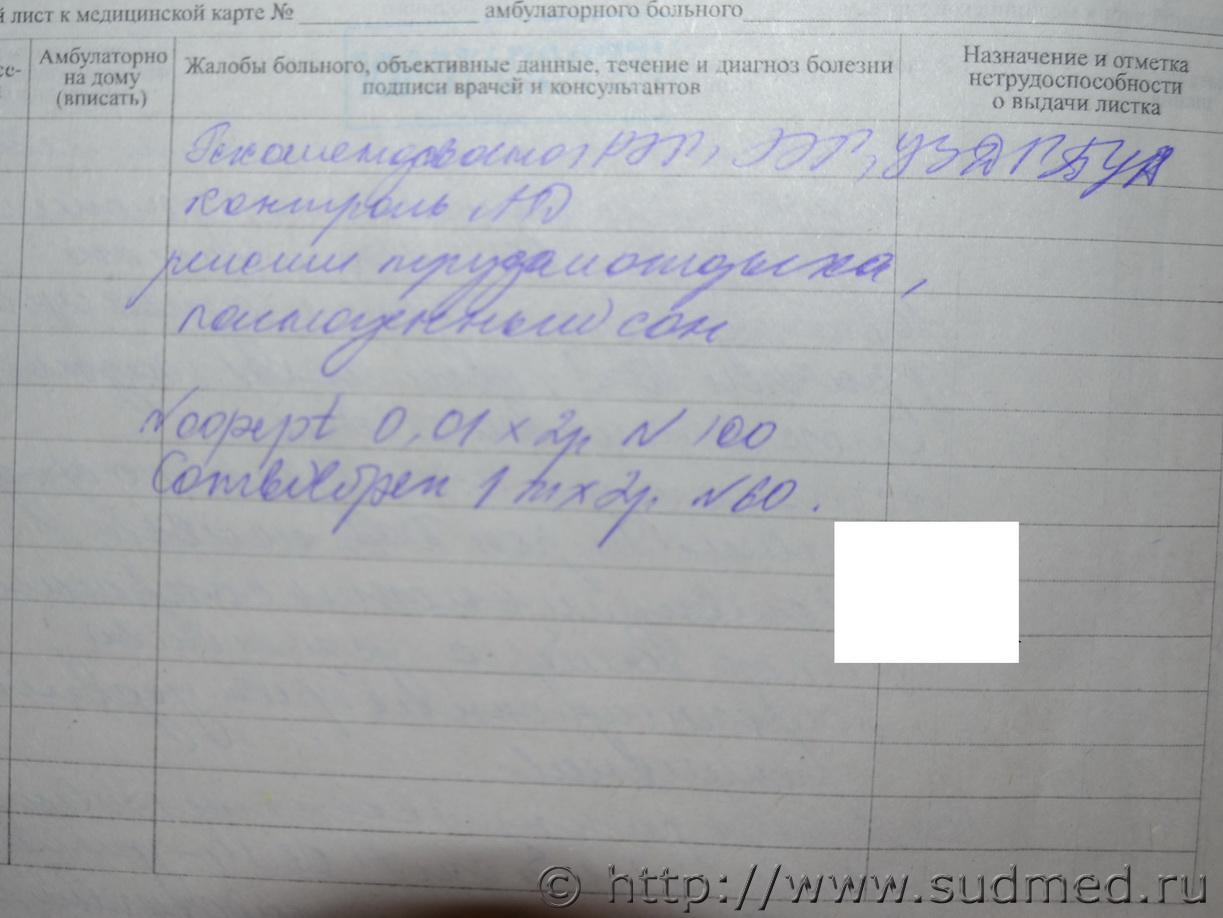 й лист к медицинской карте № ____________ амбулаторного больного____________
Амбулаторно
на дому
(вписать)
Жалобы больного, объективные данные, течение и диагноз болезни
подписи врачей и консультантов
Назначение и отметка
нетрудоспособности
о выдачи листка
РЭГ, ЭЭГ, УЗДГ БЦА
контроль АД
режим труда и отдыха,
полноценный сон
Noopept 0,01 x 2р. N 100
1 т x 2р. N60.
© http://www.sudmed.ru